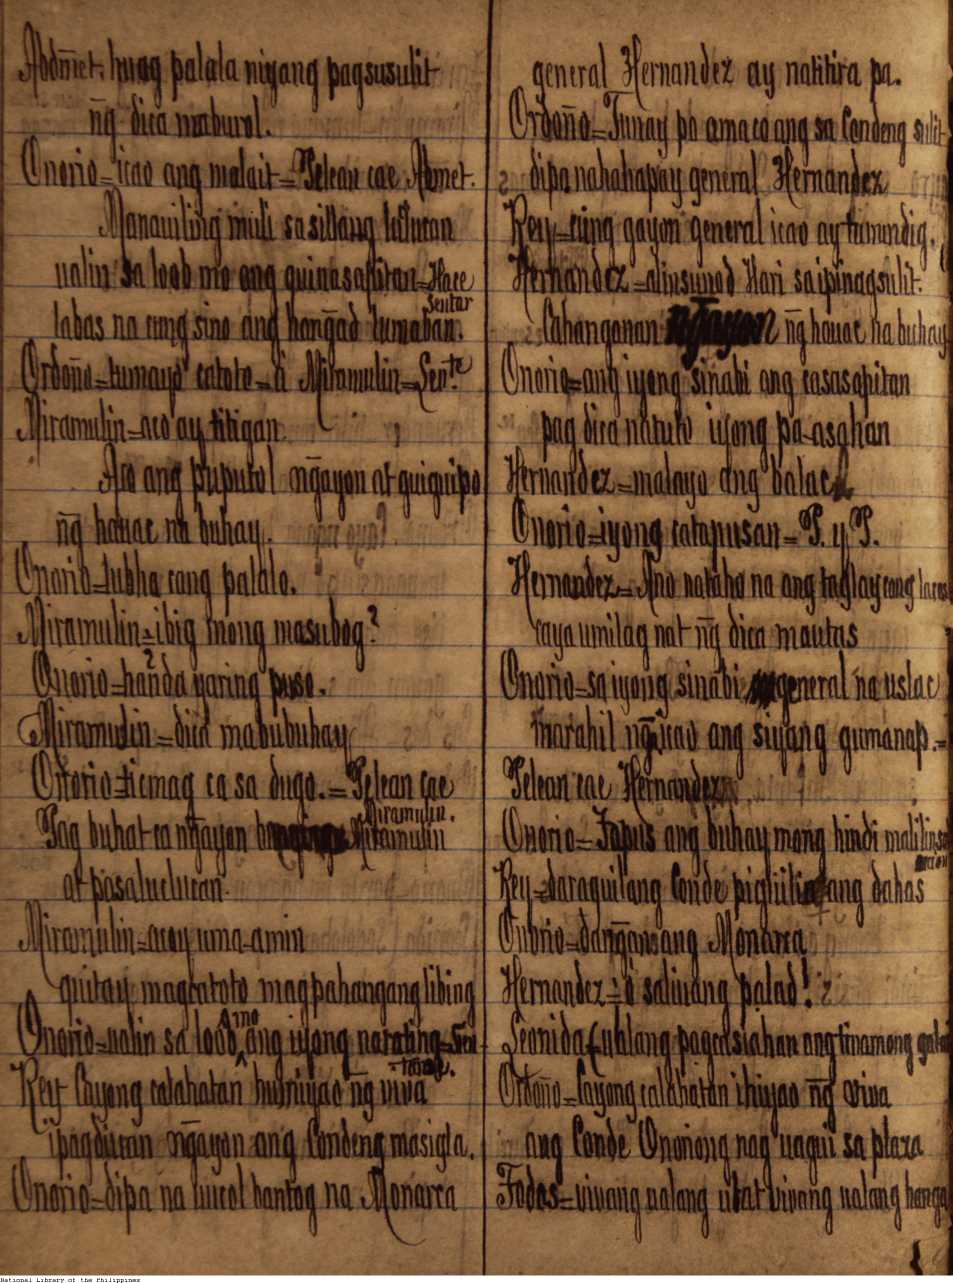 Abdmet. huag palala niyang pagsusulit
n̄g dica maburol.
Onorio=icao ang malait=Pelean cae Abmet.
Manauiling muli sa sillang luclucan
ualin sa loob mo ang quinasapitan=Hace
Sentar
labas na cung sino ang hang̃ad lumaban.
Ordoño=tumayo catoto=a Miramulin=Sente
Miramulin=aco ay titigan.
Aco ang puputol n̄gayon at quiquipo
n̄g hauac na buhay.
Onorio=lubha cang palalo.
Miramulin=ibig mong masubog?
Onorio=handa yaring puso.
Miramulin=dica mabubuhay
Onorio=ticmag ca sa dugo.=Pelean cae
Miramulin.
Pag buhat ca n̄gayon Miramulin
at pasaluclucan.
Miramulin=acoy uma-amin
quitay magcatoto magpahangang libing
Onorio=ualin sa loob mo ang iyong narating=Sen
tarse.
Rey Cayong calahatan humiyao n̄g viva
ipagdiuan n̄gayon ang Condeng masigla.
Onorio=dipa na lulucol bantog na Monarca
general Hernandez ay natitira pa.
Ordoño=Tunay po ama co ang sa Condeng sulit
dipa nahahapay general Hernandez
Rey=cung gayon general icao ay tumindig.
Hernandez=alinsunod Hari sa ipinagsulit.
Cahanganan n̄gayon n̄g hauac na buhay
Onorio=ang iyong sinabi ang casasapitan
pag dica natuto iyong pa-asahan
Hernandez=malayo ang balac
Onorio=iyong catapusan=P. y P.
Hernandez=Ano nataho na ang taglay cong lacas
caya umilag nat n̄g dica mautas
Onorio=sa iyong sinabi general na uslac
marahil n̄g icao ang siyang gumanap.=
Pelean cae Hernandez
Onorio=Tapus ang buhay mong hindi
Rey=daraquilang Conde ang dahas
Onorio=dang̃ansang Monarca
Hernandez=o saliuang palad!
Leonida Lublang pagcasiahan ang tinamong
Ordoño=Cayong calahatan ihiyao n̄g viva
ang Conde Onoriong nag uagui sa plaza
Todos=vivang ualang ubat vivang ualang hanga